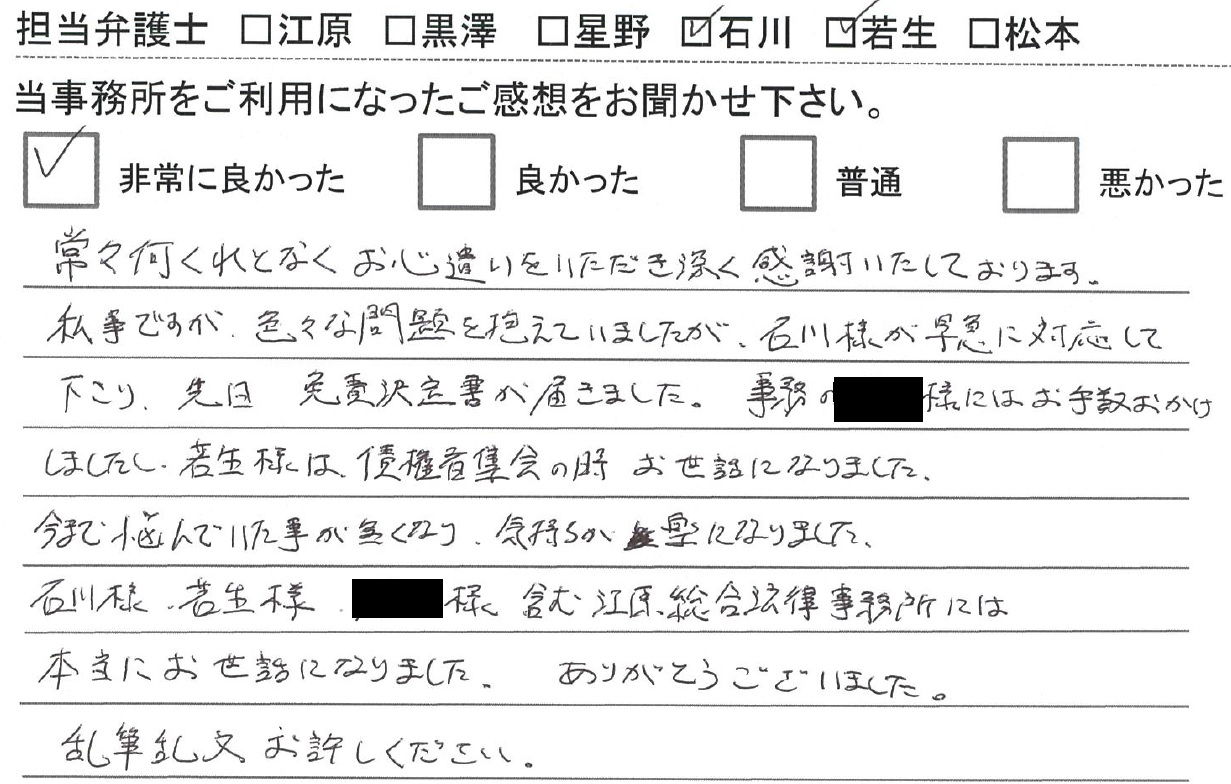 担当弁護士 □江原 □黒澤 □星野 ☑石川 ☑若生 □松本
当事務所をご利用になったご感想をお聞かせ下さい。
☑ 非常に良かった □ 良かった □ 普通 □ 悪かった
常々何くれとなくお心遣いをいただき深く感謝いたしております。
私事ですが、色々な問題を抱えていましたが、石川様が早急に対応して
下こり、先日 免責決定書が届きました。事務の 様にはお手数おかけ
しましたし、若生様は、債権者集会の時 お世話になりました。
今まで悩んでいた事が無くなり、気持ちが楽になりました、
石川様、若生様、 様 含む江原総合法律事務所には
本当にお世話になりました、 ありがとうございました。
乱筆乱文お許しください。